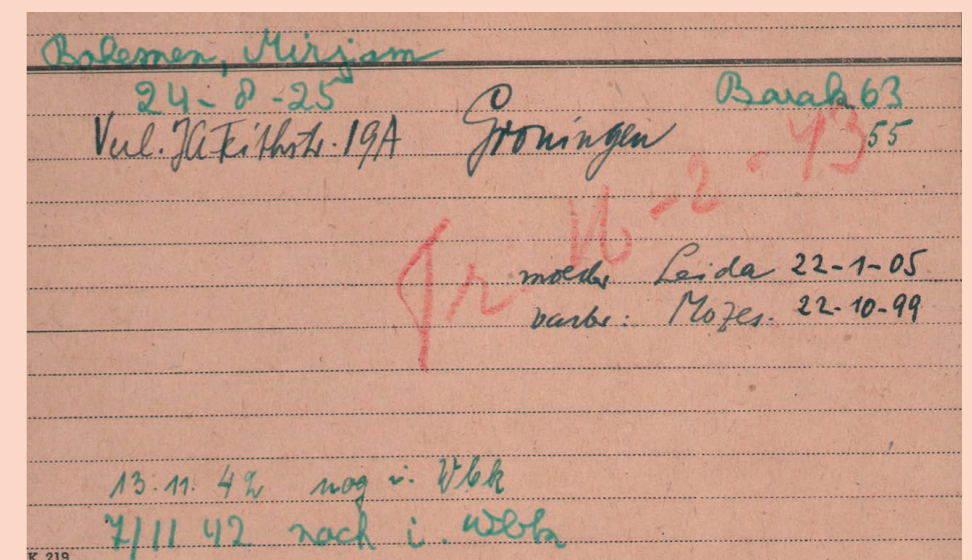 Bakemen, Mirjam
24-8-25 Barak 63
Verl. JA Feithstr. 19A Groningen 55
Tr 16-2-43
moeder Leida 22-1-05
vader: Mozes. 22-10-99
13.11.42 nog i. Wbk
7/11 42 noch i. Wbk
K 219